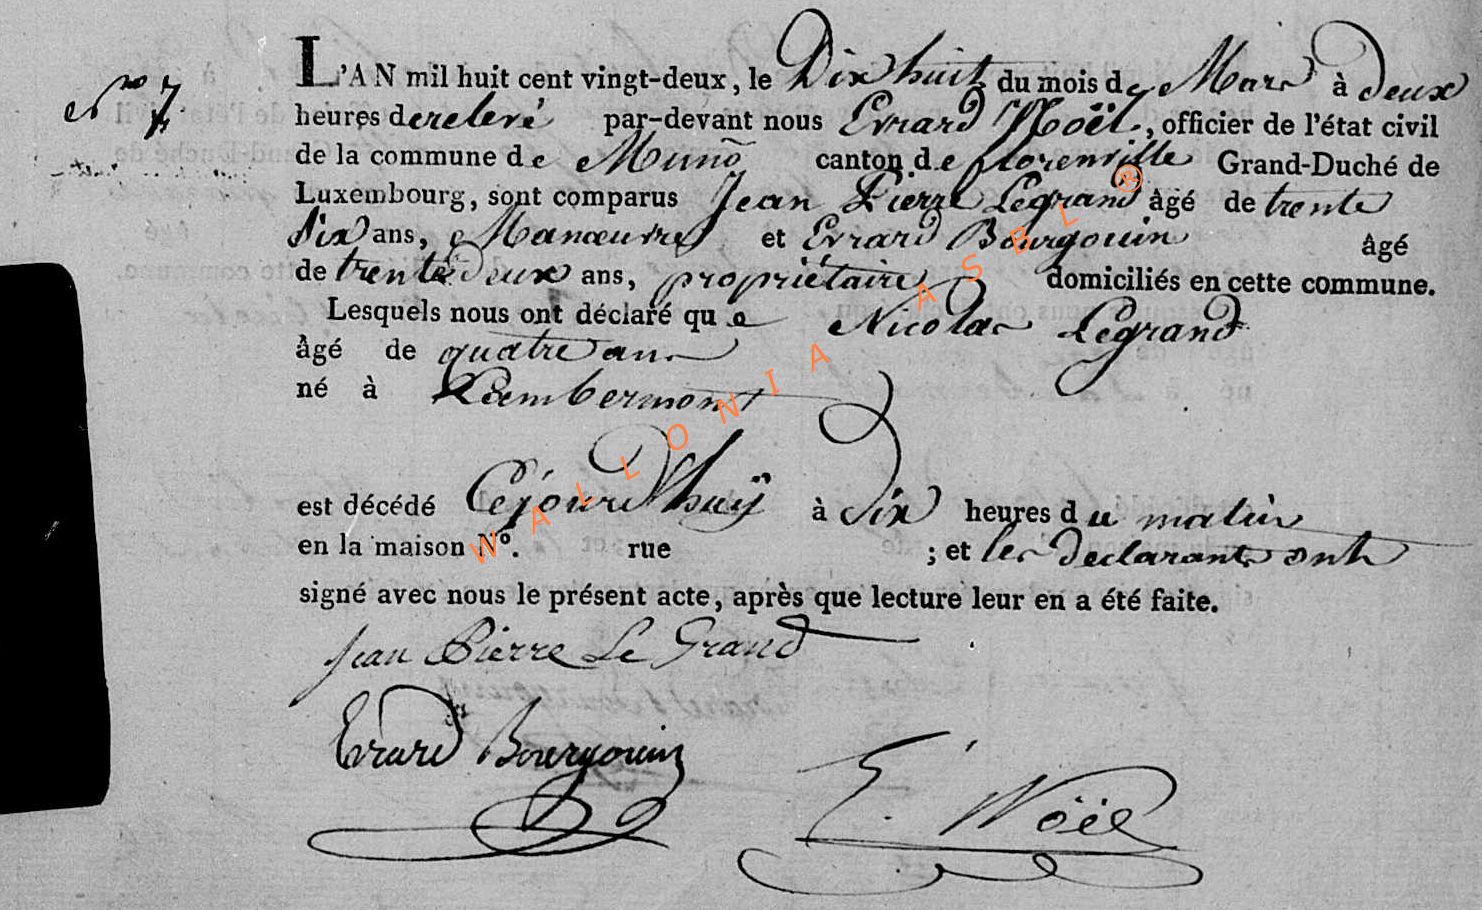 L'AN mil huit cent vingt-deux, le Dix huit du mois de Mars à deux
N° 7
heures de relevé par-devant nous Evrard Noël, officier de l'état civil
de la commune de Muno canton de florenville Grand-Duché de
Luxembourg, sont comparus Jean Pierre Legrand âgé de trente
Six ans, Manœuvre et Evrard Bourgouin âgé
de trente deux ans, propriétaire domiciliés en cette commune.
Lesquels nous ont déclaré que Nicolas Legrand
âgé de quatre ans
né à Lambermont
est décédé Cejourd'huÿ à dix heures du matin
en la maison N°. rue ; et les declarants ont
signé avec nous le présent acte, après que lecture leur en a été faite.
Jean Pierre Le Grand
Evrard Bourgouin
E. Noël
WALLONIA ASBL ®